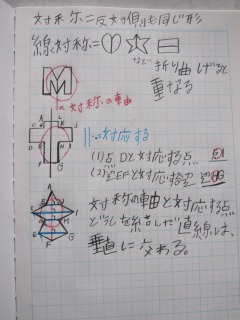 対称=反対側も同じ形
線対称=
など
折り曲げると
重なる
M
対称の軸
||…対応する
(1)点Dと対応する点
(2)辺EFと対応する辺
対称の軸と対応する点
どうしを結んだ直線は、
垂直に交わる。